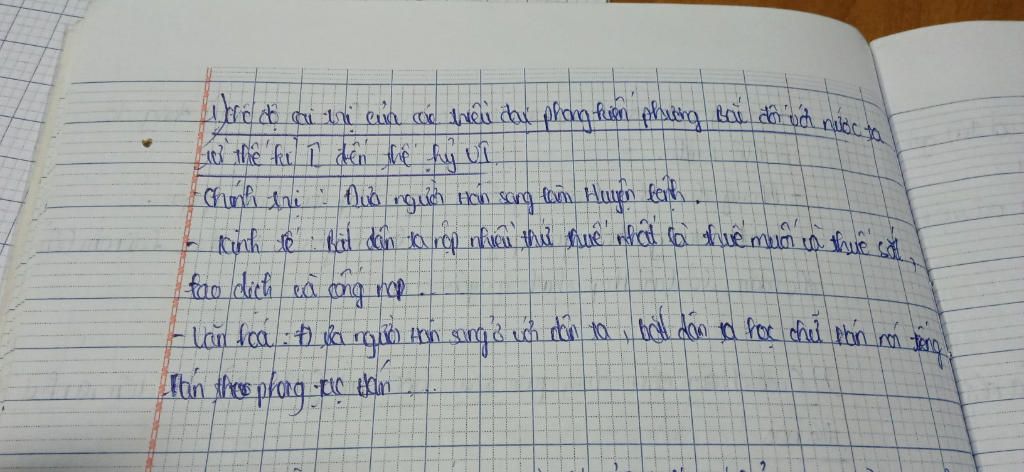 1) Chế độ cai trị của các triều đại phong kiến phương Bắc đối với nước ta
từ thế kỉ I đến thế kỷ VI
- Chính trị : Đưa người Hán sang làm Huyện lệnh.
- Kinh tế : Bắt dân ta nộp nhiều thứ thuế nhất là thuế muối và thuế sắt,
lao dịch và cống nạp..
- Văn hoá : Đưa người Hán sang ở với dân ta, bắt dân ta học chữ Hán nói tiếng
Hán theo phong tục Hán ...